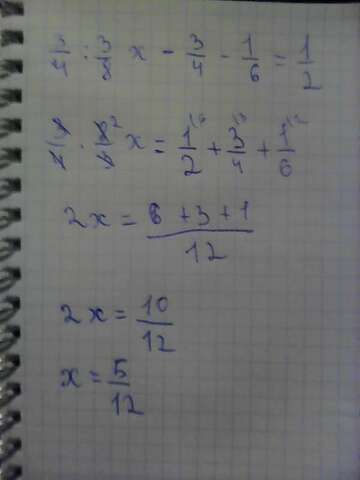 3/4 : 3/8 x - 3/4 - 1/6 = 1/2
x = 1/2 + 3/4 + 1/6
2x = 6 + 3 + 1 / 12
2x = 10/12
x = 5/12